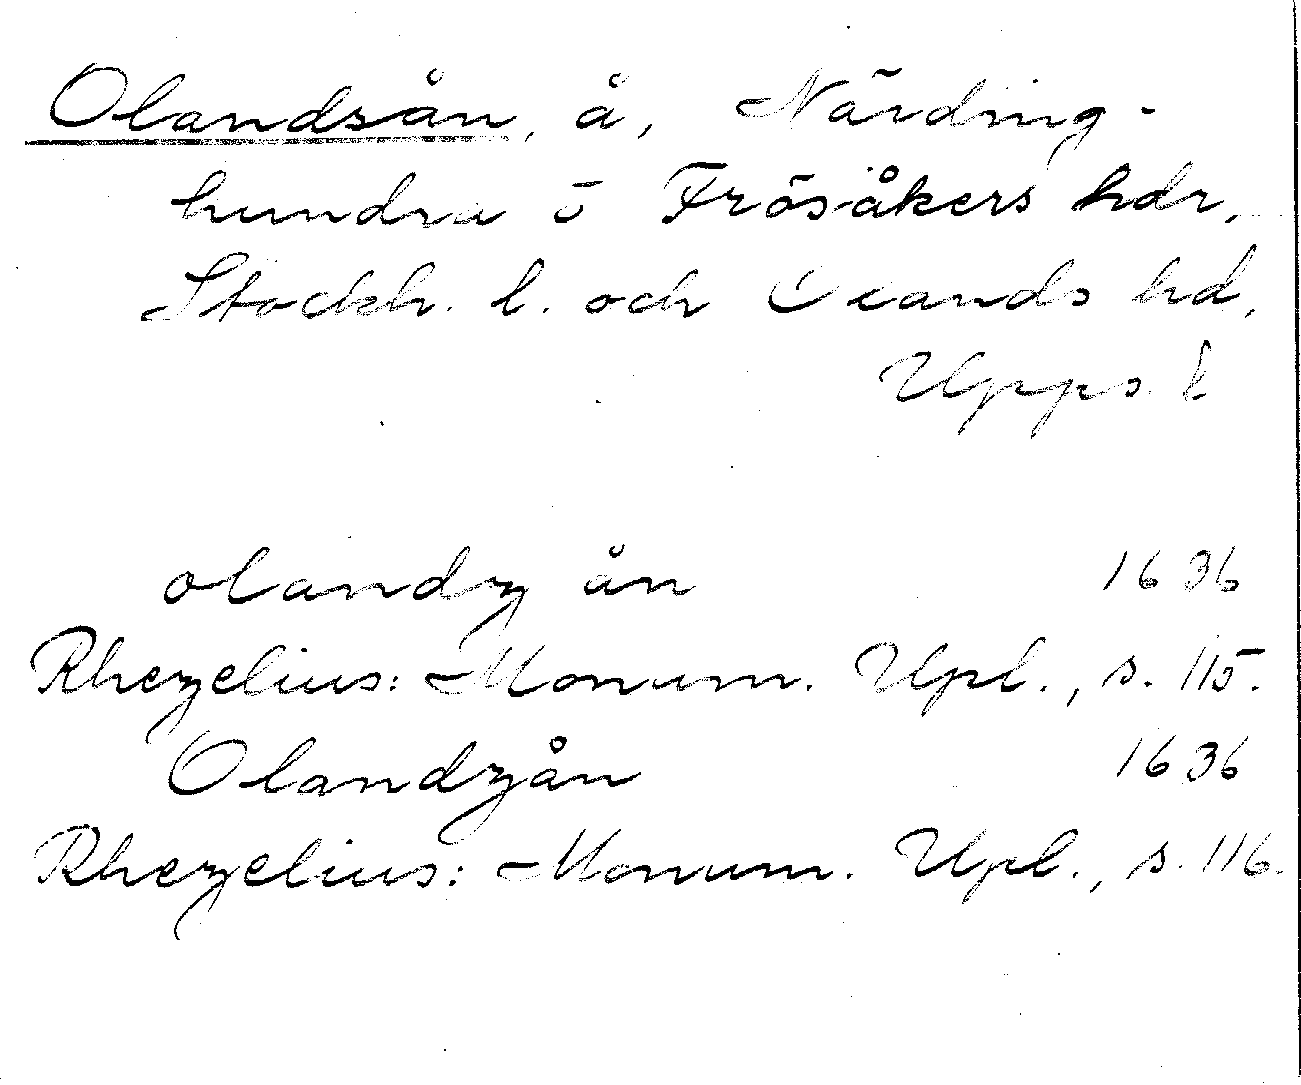 Olandsån, å, Närding-
hundra o Frösåkers hdr,
Stockh. l. och Olands hd,
Upps. l
olandz ån 1636
Rhezelius: Monum. Upl., s. 115.
Olandzån 1636
Rhezelius: Monum. Upl., s. 116.